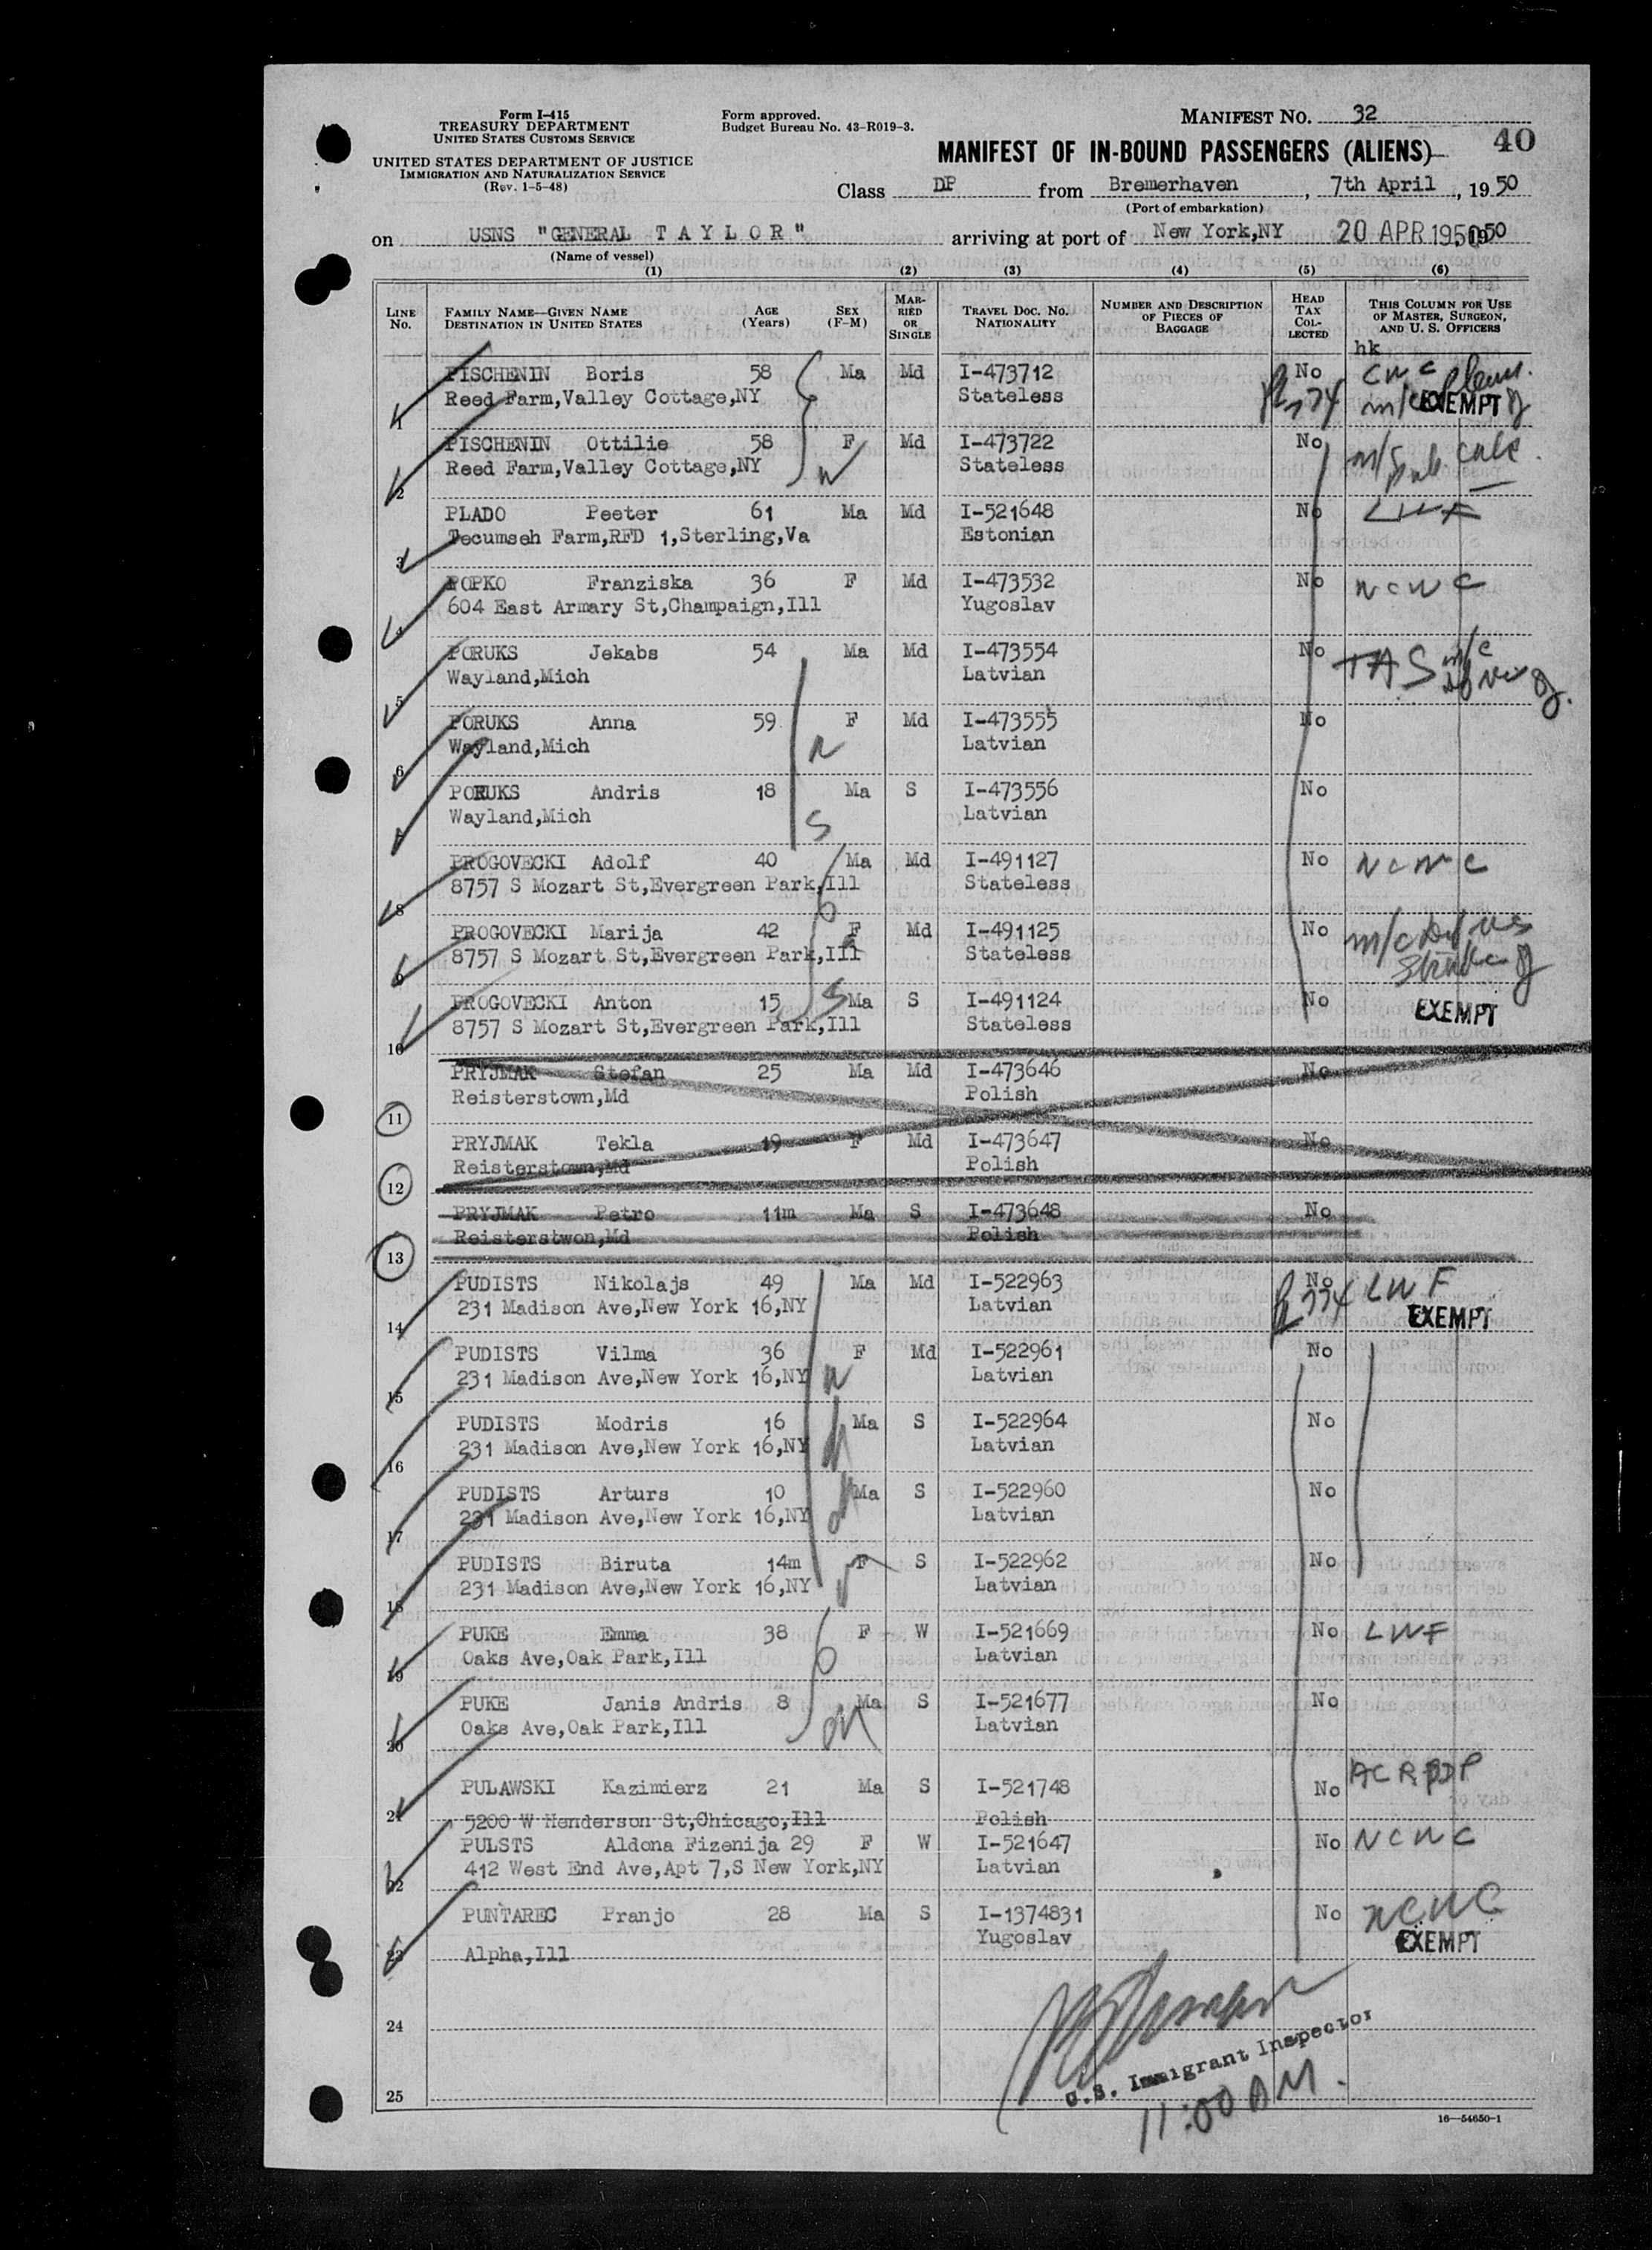 Form I-415
TREASURY DEPARTMENT
UNITED STATES CUSTOMS SERVICE
UNITED STATES DEPARTMENT OF JUSTICE
IMMIGRATION AND NATURALIZATION SERVICE
(Rev. 1-5-48)
Form approved.
Budget Bureau No. 43-R019-3.
MANIFEST NO. 32
40
MANIFEST OF IN-BOUND PASSENGERS (ALIENS)
Class DP from Bremerhaven, 7th April, 1950
(Port of embarkation)
on USNS "GENERAL TAYLOR" arriving at port of New York,NY 20 APR 1950, 1950
(Name of vessel)
(1) (2) (3) (4) (5) (6)
LINE No. FAMILY NAME—GIVEN NAME DESTINATION IN UNITED STATES AGE (Years) SEX (F-M) MARRIED OR SINGLE TRAVEL DOC. NO. NATIONALITY NUMBER AND DESCRIPTION OF PIECES OF BAGGAGE HEAD TAX COLLECTED THIS COLUMN FOR USE OF MASTER, SURGEON, AND U. S. OFFICERS
hk
PISCHENIN Boris 58 Ma Md I-473712 No CWC
1 Reed Farm,Valley Cottage,NY Stateless EXEMPT
PISCHENIN Ottilie 58 F Md I-473722 No
2 Reed Farm,Valley Cottage,NY W Stateless
PLADO Peeter 61 Ma Md I-521648 No LWF
3 Tecumseh Farm,RFD 1,Sterling,Va Estonian
POPKO Franziska 36 F Md I-473532 No NCWC
4 604 East Armary St,Champaign,Ill Yugoslav
PORUKS Jekabs 54 Ma Md I-473554 No TAS m/c
5 Wayland,Mich Latvian
PORUKS Anna 59 F Md I-473555 No
6 Wayland,Mich Latvian
PORUKS Andris 18 Ma S I-473556 No
7 Wayland,Mich S Latvian
PROGOVECKI Adolf 40 Ma Md I-491127 No NCWC
8 8757 S Mozart St,Evergreen Park,Ill Stateless
PROGOVECKI Marija 42 F Md I-491125 No
9 8757 S Mozart St,Evergreen Park,Ill Stateless
PROGOVECKI Anton 15 S Ma S I-491124 No EXEMPT
10 8757 S Mozart St,Evergreen Park,Ill Stateless
PRYJMAK Stefan 25 Ma Md I-473646 No
11 Reisterstown,Md Polish
PRYJMAK Tekla 19 F Md I-473647 No
12 Reisterstown,Md Polish
PRYJMAK Petro 11m Ma S I-473648 No
13 Reisterstwon,Md Polish
PUDISTS Nikolajs 49 Ma Md I-522963 No LWF
14 231 Madison Ave,New York 16,NY Latvian EXEMPT
PUDISTS Vilma 36 F Md I-522961 No
15 231 Madison Ave,New York 16,NY W Latvian
PUDISTS Modris 16 Ma S I-522964 No
16 231 Madison Ave,New York 16,NY Latvian
PUDISTS Arturs 10 Ma S I-522960 No
17 231 Madison Ave,New York 16,NY Latvian
PUDISTS Biruta 14m F S I-522962 No
18 231 Madison Ave,New York 16,NY Latvian
PUKE Emma 38 F W I-521669 No LWF
19 Oaks Ave,Oak Park,Ill Latvian
PUKE Janis Andris 8 Ma S I-521677 No
20 Oaks Ave,Oak Park,Ill Latvian
PULAWSKI Kazimierz 21 Ma S I-521748 No
21 5200 W Henderson St,Chicago,Ill Polish
PULSTS Aldona Fizenija 29 F W I-521647 No NCWC
22 412 West End Ave,Apt 7,S New York,NY Latvian
PUNTAREC Pranjo 28 Ma S I-1374831 No NCWC
Yugoslav EXEMPT
23 Alpha,Ill
24
U.S. Immigrant Inspector
25
11:00 AM.
16—54650-1